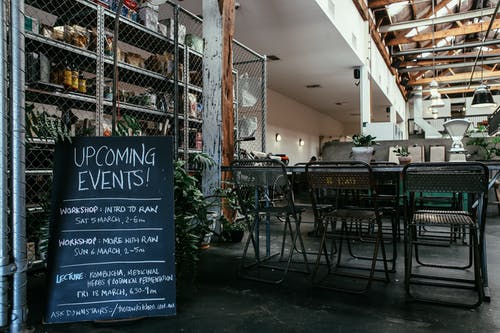 UPCOMING
EVENTS!
WORKSHOP: INTRO TO RAW
SAT 5 MARCH, 2-6PM
WORKSHOP: MORE WITH RAW
SAT 12 MARCH, 2-6PM
LECTURE: KOMBUCHA, MEDICINAL
HERBS & BOTANICAL FERMENTATION
FRI 18 MARCH, 6.30-9PM
ASK DOWNSTAIRS /